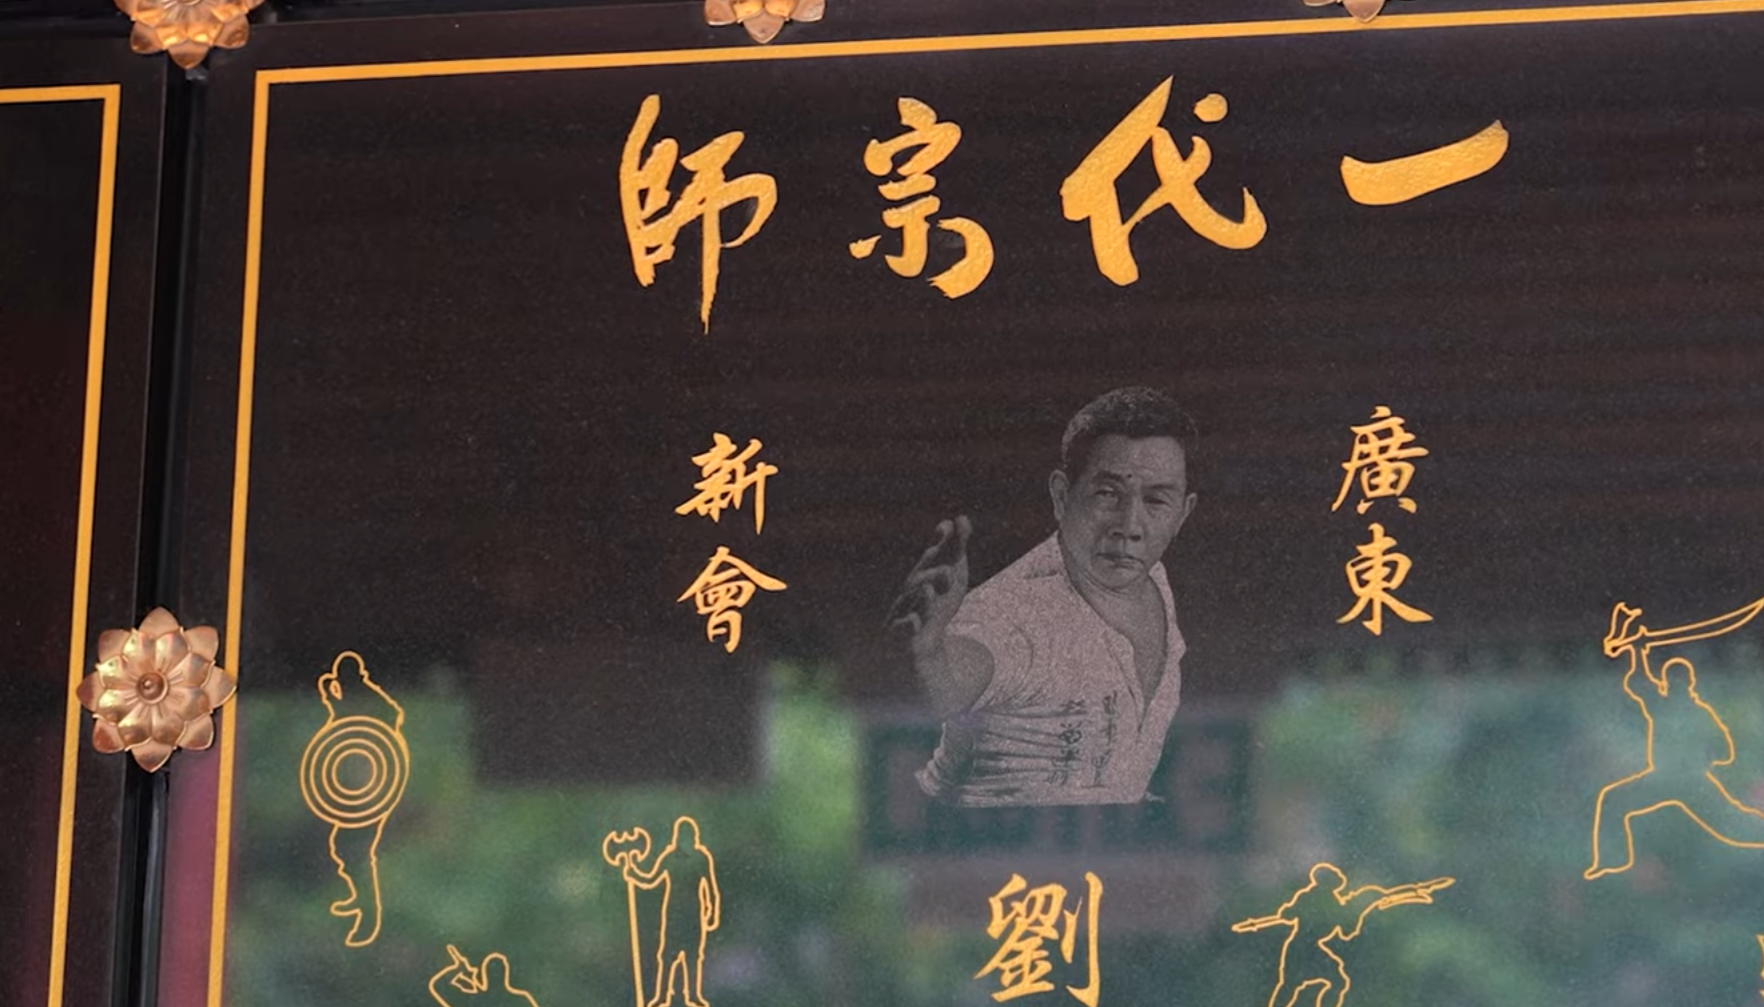 一代宗師
廣東
新會
劉